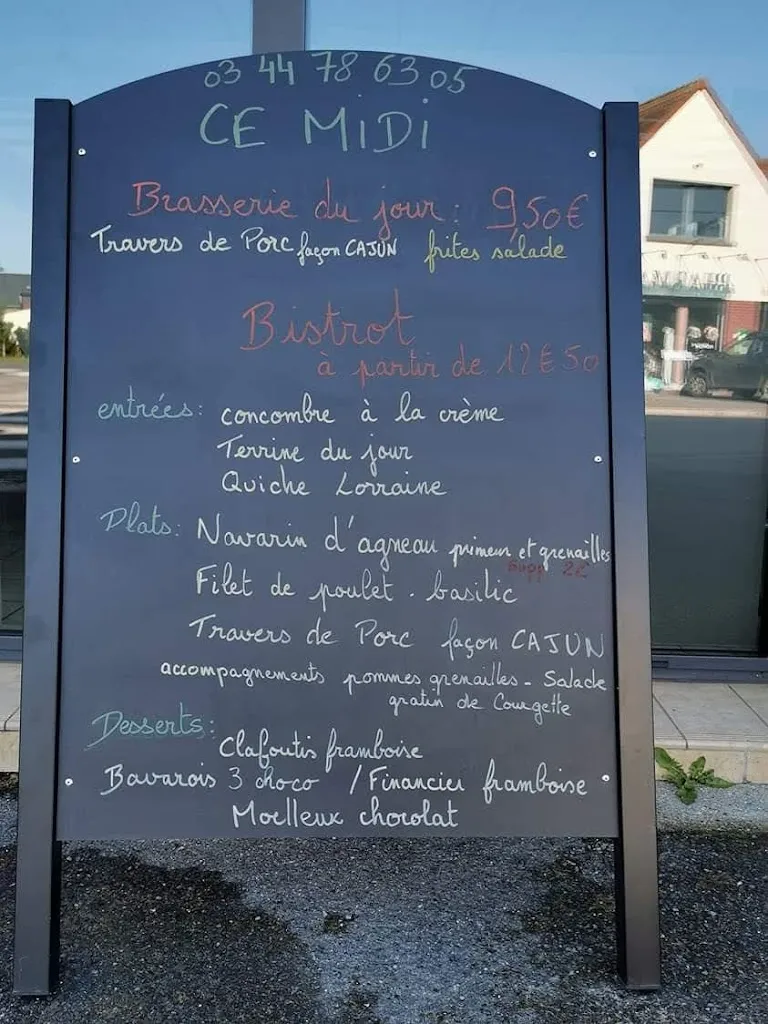 03 44 78 63 05
CE MiDi
Brasserie du jour : 9,50€
Travers de Porc façon CAJUN frites salade
Bistrot
à partir de 12€50
entrées: concombre à la crème
Terrine du jour
Quiche Lorraine
Plats: Navarin d'agneau primeur et grenailles
Supp 2€
Filet de poulet . basilic
Travers de Porc façon CAJUN
accompagnements pommes grenailles - Salade
gratin de Courgette
Desserts:
Clafoutis framboise
Bavarois 3 choco / Financier framboise
Moelleux chocolat